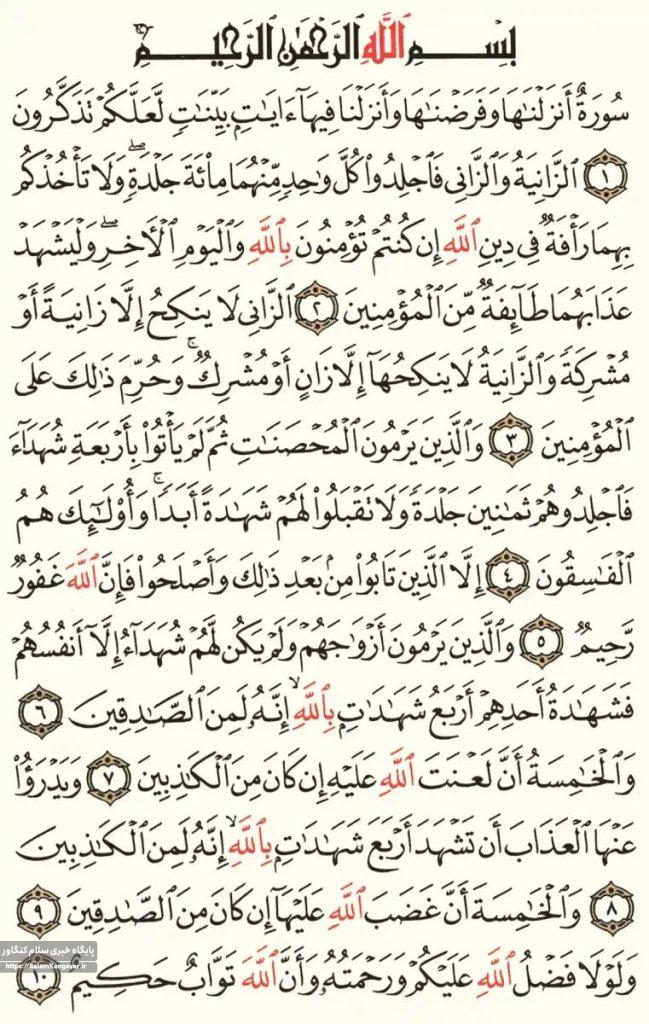 بِسْمِ ٱللَّهِ ٱلرَّحْمَٰنِ ٱلرَّحِيمِ
سُورَةٌ أَنزَلْنَٰهَا وَفَرَضْنَٰهَا وَأَنزَلْنَا فِيهَآ ءَايَٰتٍۭ بَيِّنَٰتٍ لَّعَلَّكُمْ تَذَكَّرُونَ
١ ٱلزَّانِيَةُ وَٱلزَّانِى فَٱجْلِدُوا۟ كُلَّ وَٰحِدٍ مِّنْهُمَا مِا۟ئَةَ جَلْدَةٍ ۖ وَلَا تَأْخُذْكُم
بِهِمَا رَأْفَةٌ فِى دِينِ ٱللَّهِ إِن كُنتُمْ تُؤْمِنُونَ بِٱللَّهِ وَٱلْيَوْمِ ٱلْأَخِرِ ۖ وَلْيَشْهَدْ
عَذَابَهُمَا طَآئِفَةٌ مِّنَ ٱلْمُؤْمِنِينَ ٢ ٱلزَّانِى لَا يَنكِحُ إِلَّا زَانِيَةً أَوْ
مُشْرِكَةً وَٱلزَّانِيَةُ لَا يَنكِحُهَآ إِلَّا زَانٍ أَوْ مُشْرِكٌ ۚ وَحُرِّمَ ذَٰلِكَ عَلَى
ٱلْمُؤْمِنِينَ ٣ وَٱلَّذِينَ يَرْمُونَ ٱلْمُحْصَنَٰتِ ثُمَّ لَمْ يَأْتُوا۟ بِأَرْبَعَةِ شُهَدَآءَ
فَٱجْلِدُوهُمْ ثَمَٰنِينَ جَلْدَةً وَلَا تَقْبَلُوا۟ لَهُمْ شَهَٰدَةً أَبَدًا ۚ وَأُو۟لَٰٓئِكَ هُمُ
ٱلْفَٰسِقُونَ ٤ إِلَّا ٱلَّذِينَ تَابُوا۟ مِنۢ بَعْدِ ذَٰلِكَ وَأَصْلَحُوا۟ فَإِنَّ ٱللَّهَ غَفُورٌ
رَّحِيمٌ ٥ وَٱلَّذِينَ يَرْمُونَ أَزْوَٰجَهُمْ وَلَمْ يَكُن لَّهُمْ شُهَدَآءُ إِلَّآ أَنفُسُهُمْ
فَشَهَٰدَةُ أَحَدِهِمْ أَرْبَعُ شَهَٰدَٰتٍۭ بِٱللَّهِ ۙ إِنَّهُۥ لَمِنَ ٱلصَّٰدِقِينَ ٦
وَٱلْخَٰمِسَةُ أَنَّ لَعْنَتَ ٱللَّهِ عَلَيْهِ إِن كَانَ مِنَ ٱلْكَٰذِبِينَ ٧ وَيَدْرَؤُا۟
عَنْهَا ٱلْعَذَابَ أَن تَشْهَدَ أَرْبَعَ شَهَٰدَٰتٍۭ بِٱللَّهِ ۙ إِنَّهُۥ لَمِنَ ٱلْكَٰذِبِينَ
٨ وَٱلْخَٰمِسَةَ أَنَّ غَضَبَ ٱللَّهِ عَلَيْهَآ إِن كَانَ مِنَ ٱلصَّٰدِقِينَ ٩
وَلَوْلَا فَضْلُ ٱللَّهِ عَلَيْكُمْ وَرَحْمَتُهُۥ وَأَنَّ ٱللَّهَ تَوَّابٌ حَكِيمٌ ١٠
پایگاه خبری سلام کنگاور
https://SalamKangavar.ir